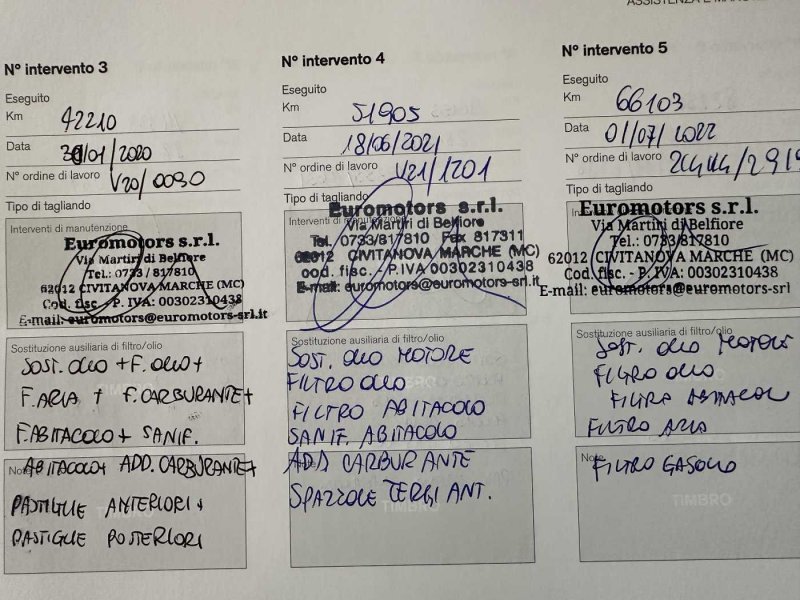 N° intervento 3
Eseguito
Km 42210
Data 30/01/2020
N° ordine di lavoro V20/0090
Tipo di tagliando
Interventi di manutenzione
Euromotors s.r.l.
Via Martiri di Belfiore
Tel.: 0733/817810
62012 CIVITANOVA MARCHE (MC)
Cod. fisc. - P. IVA: 00302310438
E-mail: euromotors@euromotors-srl.it
Sostituzione ausiliaria di filtro/olio
SOST. OLIO + F. OLIO +
F. ARIA + F. CARBURANTE +
F. ABITACOLO + SANIF.
ABITACOLO + ADD. CARBURANTE +
PASTIGLIE ANTERIORI +
PASTIGLIE POSTERIORI
N° intervento 4
Eseguito
Km 51905
Data 18/06/2021
N° ordine di lavoro V21/1201
Tipo di tagliando
Interventi di manutenzione
Euromotors s.r.l.
Via Martiri di Belfiore
Tel. 0733/817810 Fax 817311
62012 CIVITANOVA MARCHE (MC)
cod. fisc. - P.IVA 00302310438
E-mail: euromotors@euromotors-srl.it
Sostituzione ausiliaria di filtro/olio
SOST. OLIO MOTORE
FILTRO OLIO
FILTRO ABITACOLO
SANIF. ABITACOLO
ADD CARBURANTE
SPAZZOLE TERGI ANT.
TIMBRO
N° intervento 5
Eseguito
Km 66103
Data 01/07/2022
N° ordine di lavoro
Tipo di tagliando
Euromotors s.r.l.
Via Martiri di Belfiore
Tel.: 0733/817810
62012 CIVITANOVA MARCHE (MC)
Cod. fisc. - P. IVA: 00302310438
E-mail: euromotors@euromotors-srl
Sostituzione ausiliaria di filtro/olio
SOST. OLIO MOTORE
FILTRO OLIO
FILTRO ABITACOLO
FILTRO ARIA
Note
FILTRO GASOLIO
TIMBRO